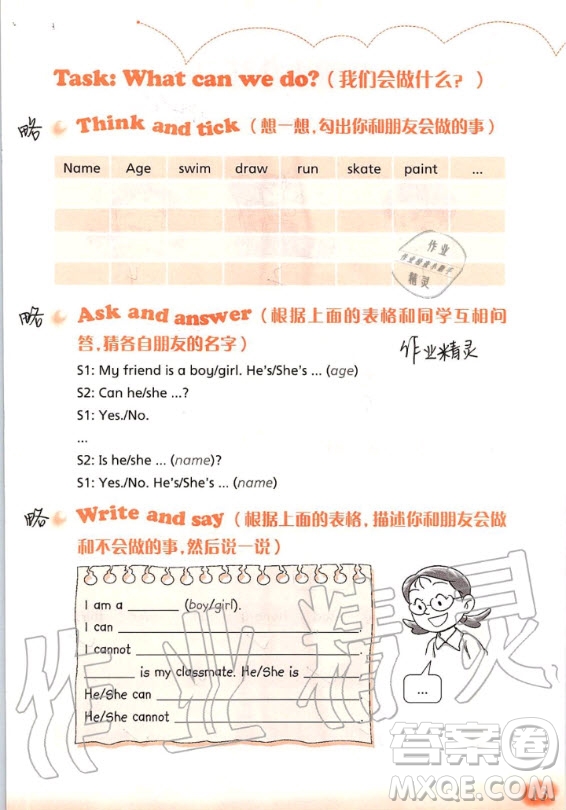 Task: What can we do?（我们会做什么？）
略 Think and tick（想一想，勾出你和朋友会做的事）
Name Age swim draw run skate paint ...
作业
作业检查小助手
精灵
略 Ask and answer（根据上面的表格和同学互相问
答，猜各自朋友的名字）
作业精灵
S1: My friend is a boy/girl. He's/She's ... (age)
S2: Can he/she ...?
S1: Yes./No.
...
S2: Is he/she ... (name)?
S1: Yes./No. He's/She's ... (name)
略 Write and say（根据上面的表格，描述你和朋友会做
和不会做的事，然后说一说）
I am a ________ (boy/girl).
I can ________.
I cannot ________.
________ is my classmate. He/She is ________.
He/She can ________.
He/She cannot ________.
...
作业精灵
答案卷
MXQE.COM